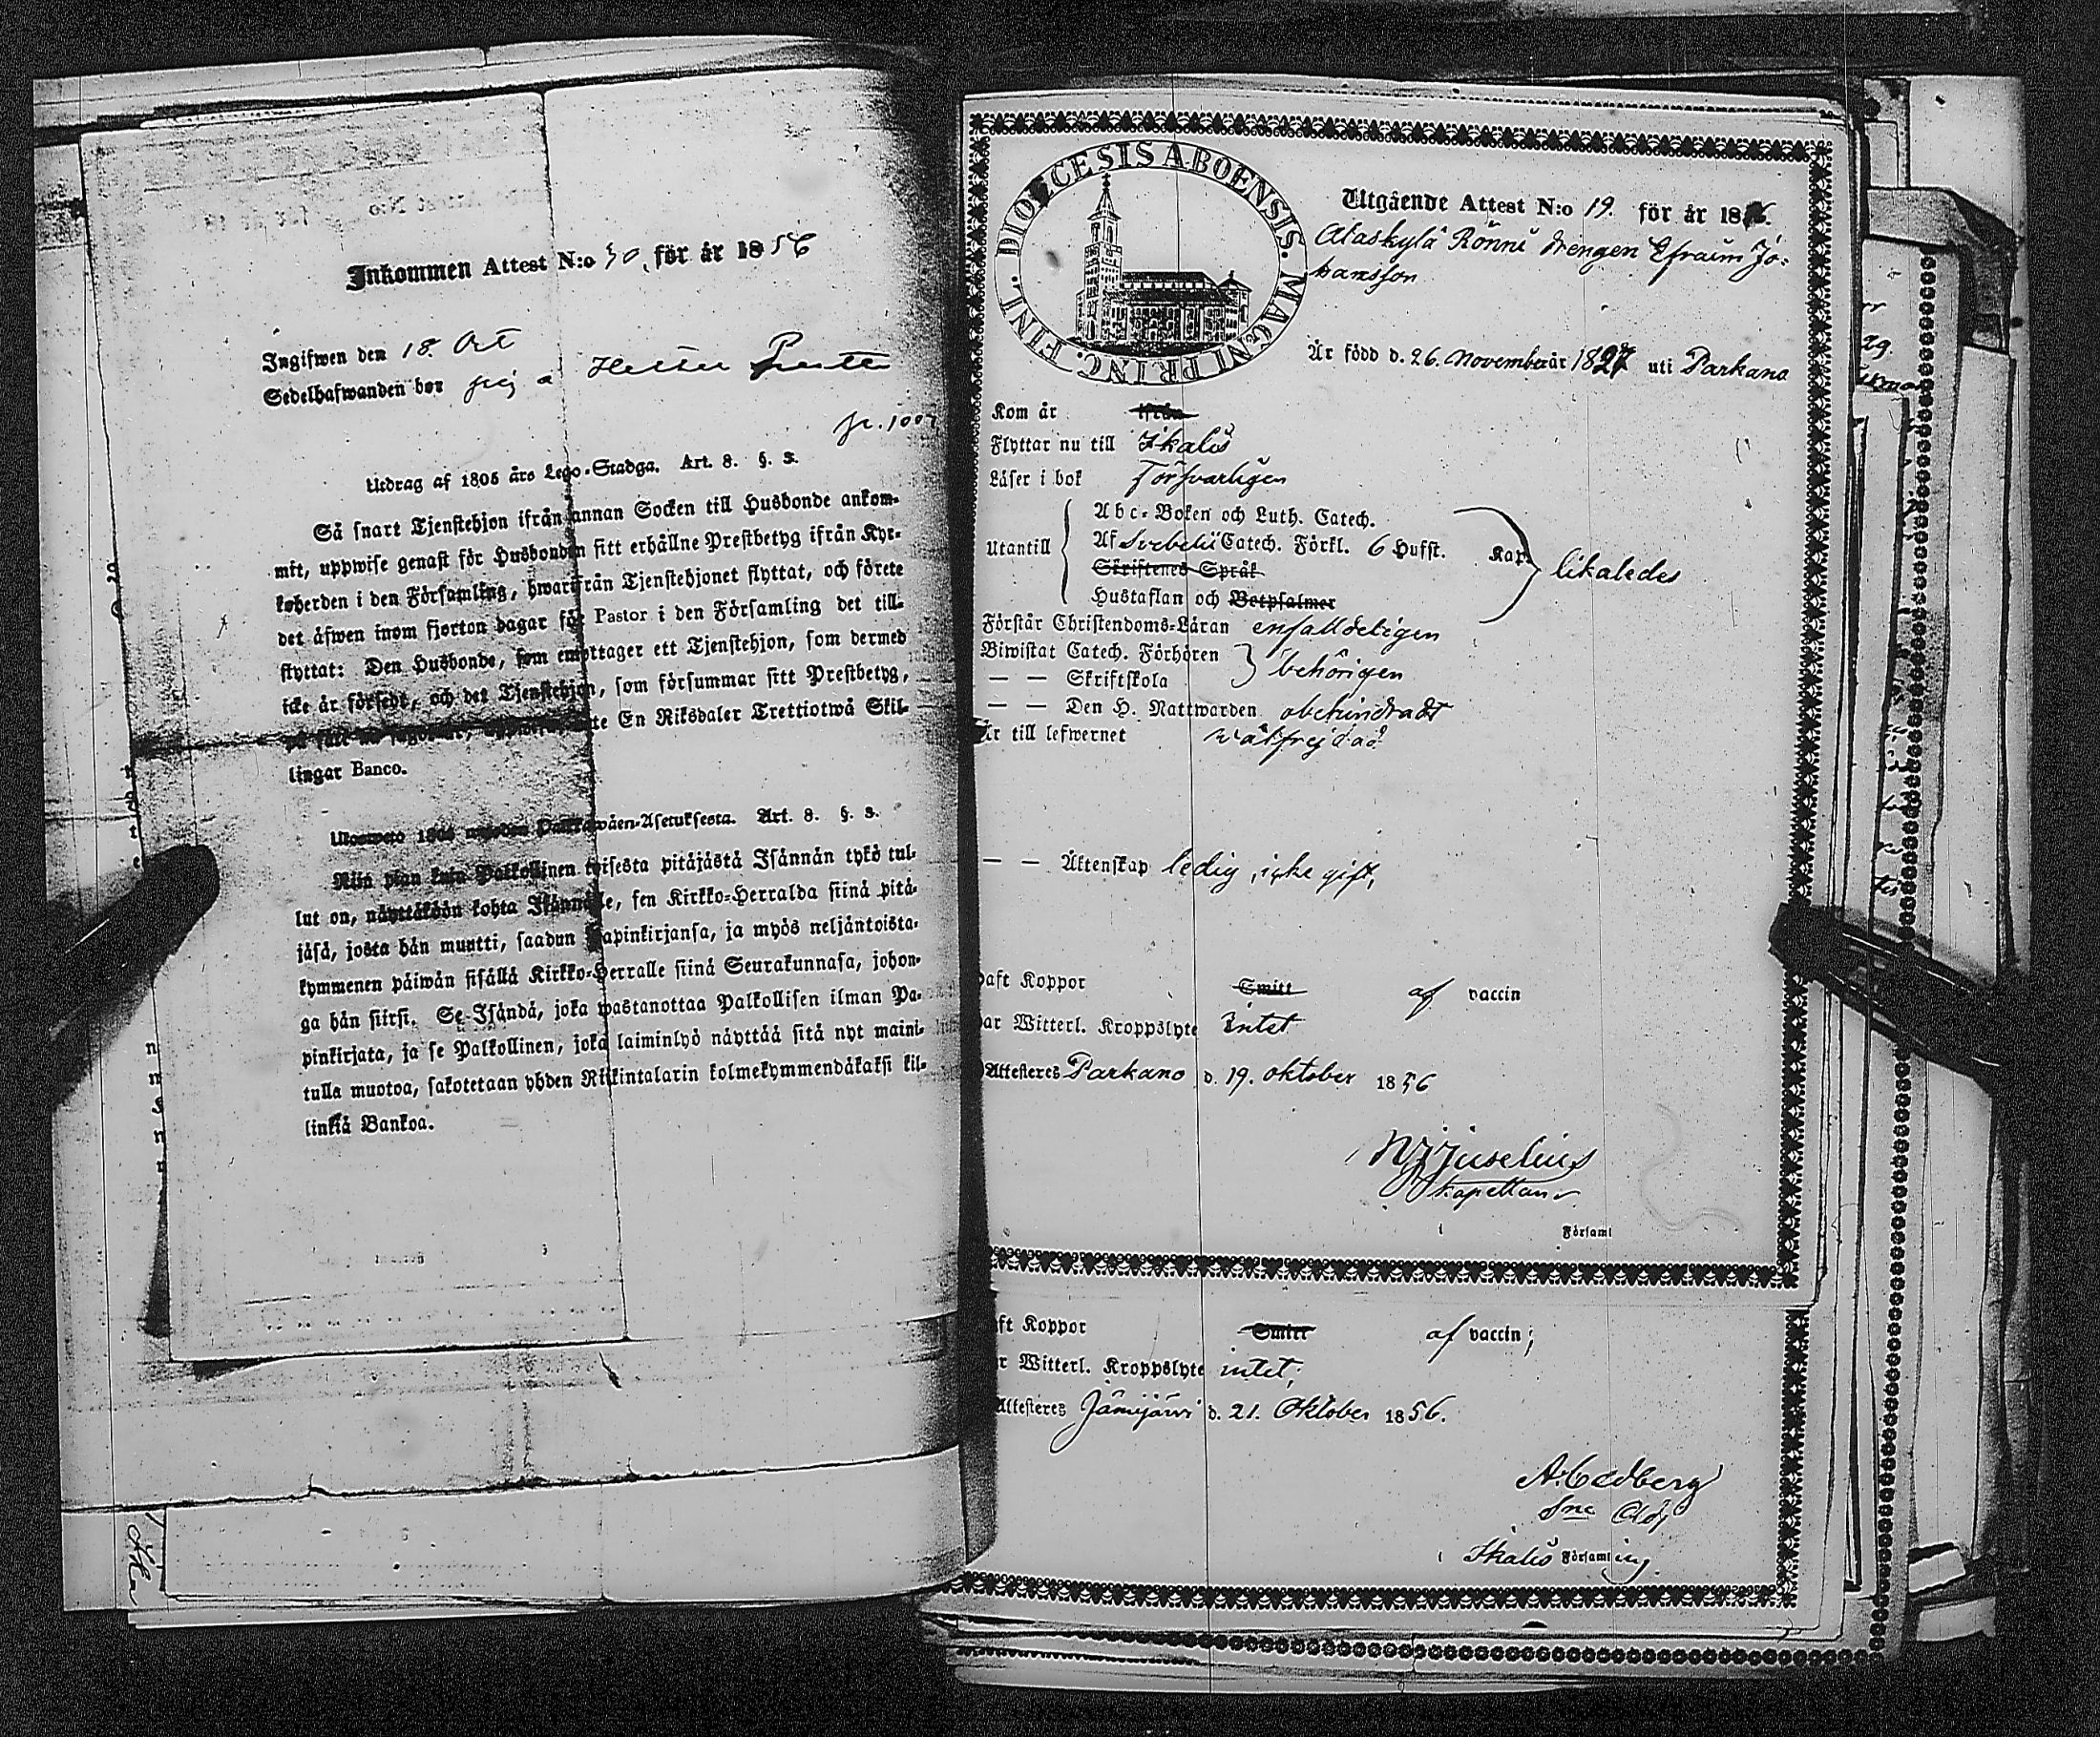 Inkommen Attest N:o 50, för år 1856
Ingifwen den 18. Oct
Sedelhafwanden bor på
Utdrag af 1805 års Lego-Stadga. Art. 8. §. 3.
Så snart Tjenstehjon ifrån annan Socken till Husbonde ankom-
mit, uppwise genast för Husbonden sitt erhållne Prestbetyg ifrån Kyr-
koherden i den Församling, hwarifrån Tjenstehjonet flyttat, och förete
det äfwen inom fjorton dagar för Pastor i den Församling det till-
flyttat: Den Husbonde, som emottager ett Tjenstehjon, som dermed
icke är försedt, och det Tjenstehjon, som försummar sitt Prestbetyg,
på sätt nu sagdt är, En Riksdaler Trettiotwå Skil-
lingar Banco.
Ulosweto 1805 Palkkawäen-Asetuksesta. Art. 8. §. 3.
Niin pian kuin Palkollinen toisesta pitäjästä Isännän tykö tul-
lut on, näyttäköön kohta Isännälle, sen Kirkko-Herralda siinä pitä-
jäsä, josta hän muutti, saadun Papinkirjansa, ja myös neljäntoista-
kymmenen päiwän sisällä Kirkko-Herralle siinä Seurakunnasa, johon-
ga hän siirsi. Se Isändä, joka wastanottaa Palkollisen ilman Pa-
pinkirjata, ja se Palkollinen, joka laiminlyö näyttää sitä nyt maini-
tulla muotoa, sakotetaan yhden Riikintalarin kolmekymmendäkaksi kil-
linkiä Bankoa.
DIOECESIS ABOENSIS. MAGNI PRINC. FINL.
Utgående Attest N:o 19. för år 1856.
Alaskylä Rönni drengen Efraim Jo-
hansson
Är född d. 26. November år 1827 uti Parkano
Kom år ifrån
Flyttar nu till Ikalis
Läser i bok Försvarligen
Abc-Boken och Luth. Catech.
Utantill Af Svebelii Catech. Förkl. 6 Hufst. Kap. likaledes
Skriftenes Språk
Hustaflan och Botpsalmer
Förstår Christendoms-Läran enfalldeligen
Biwistat Catech. Förhören behörigen
— — Skriftskola
— — Den H. Nattwarden obehindradt
Är till lefwernet wälfrejdad
— — Äktenskap ledig, icke gift,
haft Koppor Smitt af vaccin
har Witterl. Kroppslyte Intet
Attesteres Parkano d. 19. oktober 1856
Juselius
kapellan
Församl
aft Koppor Smitt af vaccin;
r Witterl. Kroppslyte intet;
Attesteres Jämijärvi d. 21. Oktober 1856.
A. Cedberg
i Ikalis Församling.